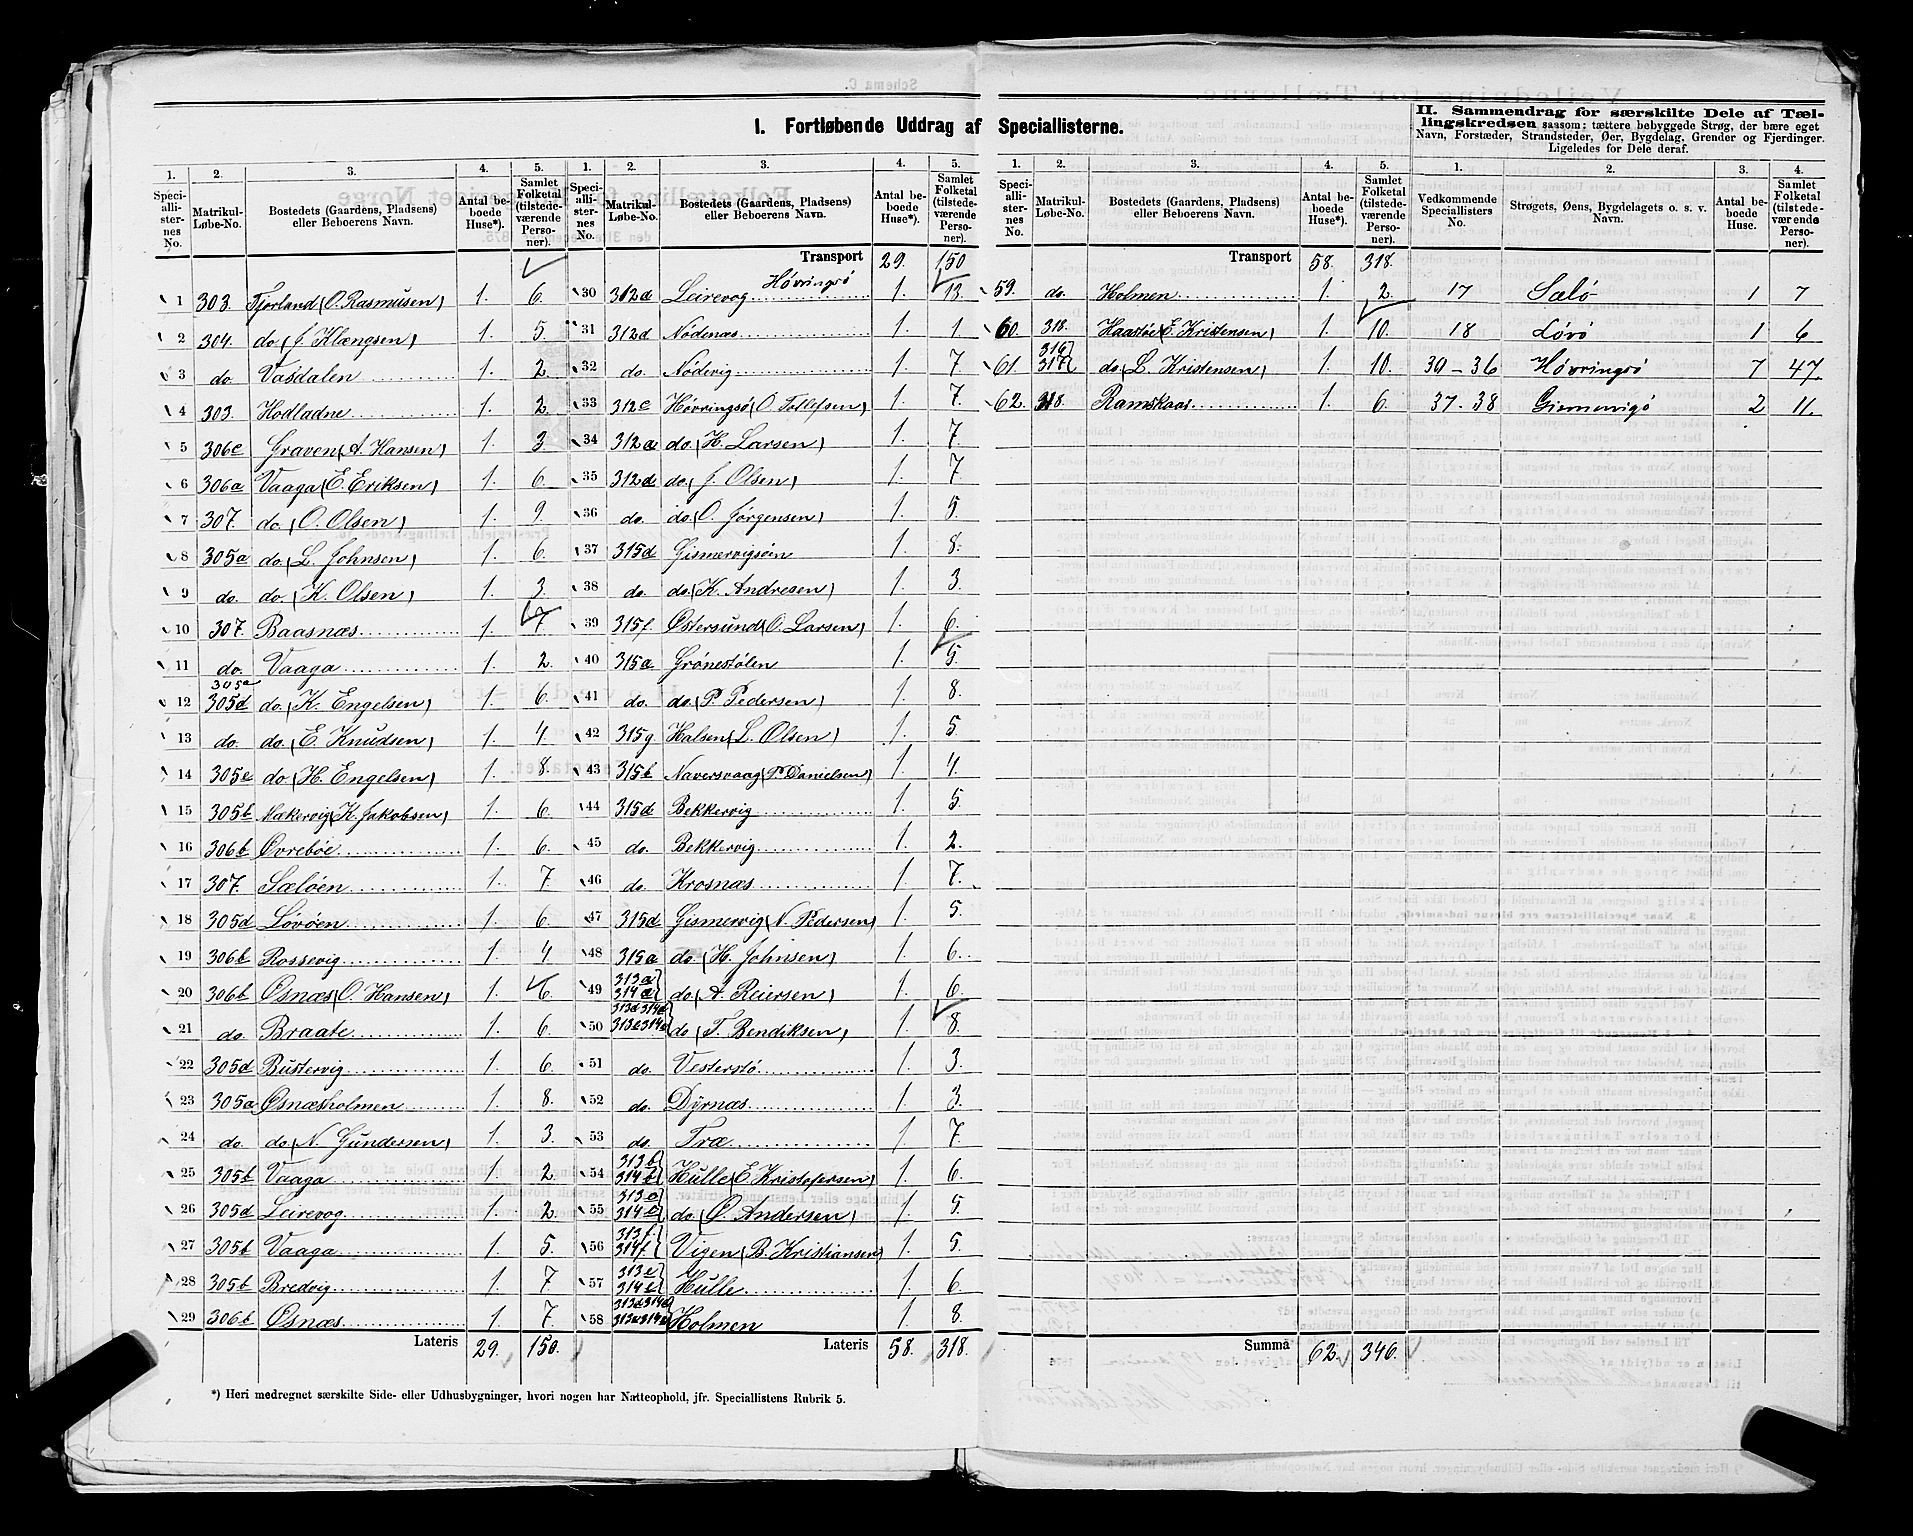 I. Fortløbende Uddrag af Speciallisterne.
II. Sammendrag for særskilte Dele af Tællingskredsen saasom: tættere bebyggede Strøg, der bære eget Navn, Forstæder, Strandsteder, Øer, Bygdelag, Grender og Fjerdinger. Ligeledes for Dele deraf.
1. 2. 3. 4. 5. 1. 2. 3. 4. 5.
Speciallisternes No. Matrikul-Løbe-No. Bostedets (Gaardens, Pladsens) eller Beboerens Navn. Antal beboede Huse*). Samlet Folketal (tilstedeværende Personer). Speciallisternes No. Matrikul-Løbe-No. Bostedets (Gaardens, Pladsens) eller Beboerens Navn. Antal beboede Huse*). Samlet Folketal (tilstedeværende Personer).
1 303. Fjorland (O. Rasmusen) 1. 6.
2 304. do. (J. Klængsen) 1. 5.
3 do. Vasdalen 1. 2.
4 303. Hodladne 1. 2.
5 306c Graven (A. Hansen) 1. 3
6 306a Vaaga (E. Eriksen) 1. 6.
7 307. do. (O. Olsen) 1. 9.
8 305a do. (L. Johnsen) 1. 6.
9 do. do. (K. Olsen) 1. 3.
10 307. Baasnæs 1. 7
11 do. Vaaga 1. 2.
12 305a 305d do. (K. Engelsen) 1. 6.
13 do. do. (E. Knudsen) 1. 4
14 305c do. (H. Engelsen) 1. 8.
15 305b Makervig (K. Jakobsen) 1. 6.
16 306b Øvrebøe 1. 6.
17 307. Sæløen 1. 7.
18 305d Løvøen 1. 6.
19 306b Rossevig 1. 4
20 306b Osnæs (O. Hansen) 1. 6.
21 do. Braate 1. 6.
22 305d Bustervig 1. 6
23 305a Osnæsholmen 1. 8.
24 do. do. (N. Gundersen) 1. 3.
25 305b Vaaga 1. 2
26 305d Leirevog 1. 2.
27 305b Vaaga 1. 5.
28 305b Bredvig 1. 7
29 306b Osnæs 1. 7.
Lateris 29. 150.
Transport 29. 150
30 312d Leirevog Høvringsø 1. 13.
31 312d Nödenæs 1. 1
32 do. Nödevig 1. 7
33 312c Høvringsø (O. Tollefsen) 1. 7.
34 312a do. (H. Larsen) 1. 7.
35 312d do. (J. Olsen) 1. 7
36 do. do. (O. Jørgensen) 1. 5.
37 315d Gismervigsøin 1. 8.
38 do. do. (K. Andresen) 1. 3.
39 315f. Østersund (O. Larsen) 1. 6.
40 315a Grönestølen 1. 5.
41 do. do. (P. Pedersen) 1. 8.
42 315g. Halsen (L. Olsen) 1. 5
43 315b Naversvaag (P. Danielsen) 1. 4.
44 315d Bekkervig 1. 5.
45 do. Bekkervig 1. 2.
46 do. Krosnæs 1. 7.
47 315d Gismervig (N. Pedersen) 1. 5.
48 315a do. (H. Johnsen) 1. 6.
49 313a 314a do. (A. Reiersen) 1. 6.
50 313d 314d 313c 314c do. (T. Bendiksen) 1. 8.
51 do. Vesterstø 1. 3.
52 do. Dyrnæs 1. 3.
53 do. Træ 1. 7.
54 313b 314b Hulle (E. Kristofersen) 1. 6
55 313c 314c do. (O. Andersen) 1. 5
56 313f. 314f. Vigen (B. Kristiansen) 1. 5.
57 313e 314e Hulle 1. 6
58 313d 314d 313c 314c Holmen 1. 8.
Lateris 58. 318.
*) Heri medregnet særskilte Side- eller Udhusbygninger, hvori nogen har Natteophold, jfr. Speciallistens Rubrik 5.
1. 2. 3. 4. 5. 1. 2. 3. 4.
Speciallisternes No. Matrikul-Løbe-No. Bostedets (Gaardens, Pladsens) eller Beboerens Navn. Antal beboede Huse*). Samlet Folketal (tilstedeværende Personer). Vedkommende Speciallisters No. Strøgets, Øens, Bygdelagets o. s. v. Navn. Antal beboede Huse. Samlet Folketal (tilstedeværende Personer).
Transport 58. 318.
59. do. Holmen 1. 2. 17 Sælø 1 7
60. 318. Haastøe (E. Kristensen) 1. 10. 18 Løvø 1 6
61 316 317 do. L. Kristensen) 1. 10. 30-36 Høvringsø 7 47.
62. 318. Ramskaar 1. 6. 37-38 Gismervigø 2 11.
Summa 62. 346.